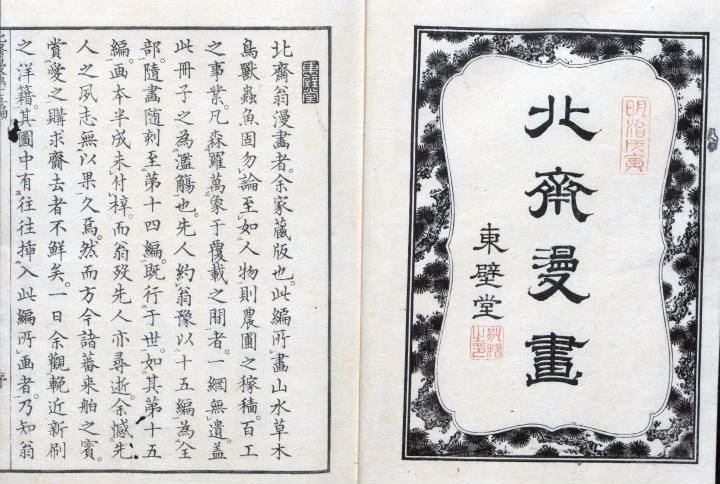 明治戊寅
北齋漫畫
東壁堂
東壁堂
北齋翁漫畫者。余家蔵版也。此編所畫山水草木
鳥獸蟲魚固勿論。至如人物則農圃之稼穡。百工
之事業。凡森羅萬象于覆載之間者。一網無遺。蓋
此冊子之為濫觴也。先人約翁豫以十五編為全
部。隨畫隨刻至第十四編。既行于世。如其第十五
編。画本半成未付梓。而翁歿先人亦尋逝。余憾先
人之夙志無以果久焉。然而方今諸蕃来舶之賓。
賞愛之購求齎去者不鮮矣。一日余觀輓近新刷
之洋籍。其圖中有往往揷入此編所画者。乃知翁
序